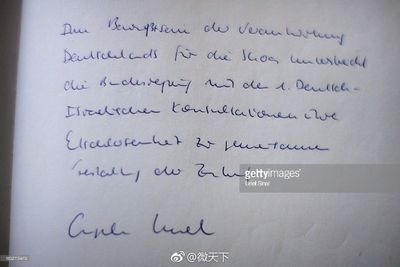 Im Bewusstsein der Verantwortung
Deutschlands für die Shoa unterstreicht
die Bundesregierung mit den 1. Deutsch-
Israelischen Konsultationen ihre
Entschlossenheit zur gemeinsamen
Gestaltung der Zukunft
gettyimages®
Lior Mizrahi
Angela Merkel
@微天下